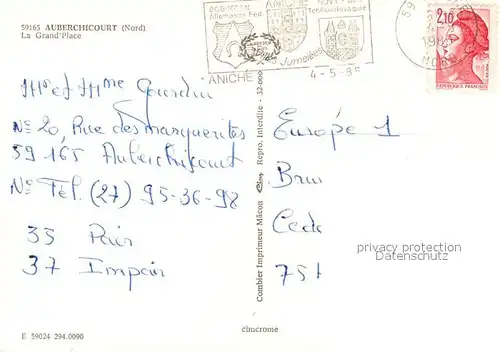 59165 AUBERCHICOURT (Nord)
La Grand'Place
ANICHE
Jumelées
4-5-85
2,10
REPUBLIQUE FRANÇAISE
Mr et Mme Gourdin
N° 20, Rue des Marguerites
59 165 Auberchicourt
N° Tél. (27) 95-36-98
35 Pair
37 Impair
Combier Imprimeur Mâcon Repro. Interdite - 32-000
Europe 1
75
privacy protection watermark
Old Postcards
cimcrome
E 59024 294.0090